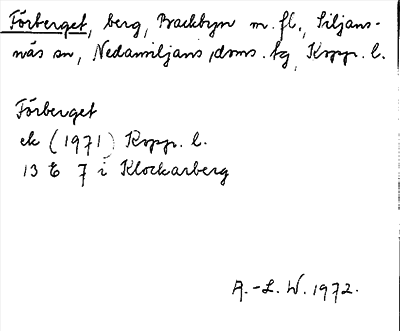 Förberget, berg, Backbyn m. fl., Siljans-
näs sn, Nedansiljans doms. tg, Kopp. l.
Förberget
ek (1971) Kopp. l.
13 E 7 i Klockarberg
A.-L. W. 1972.